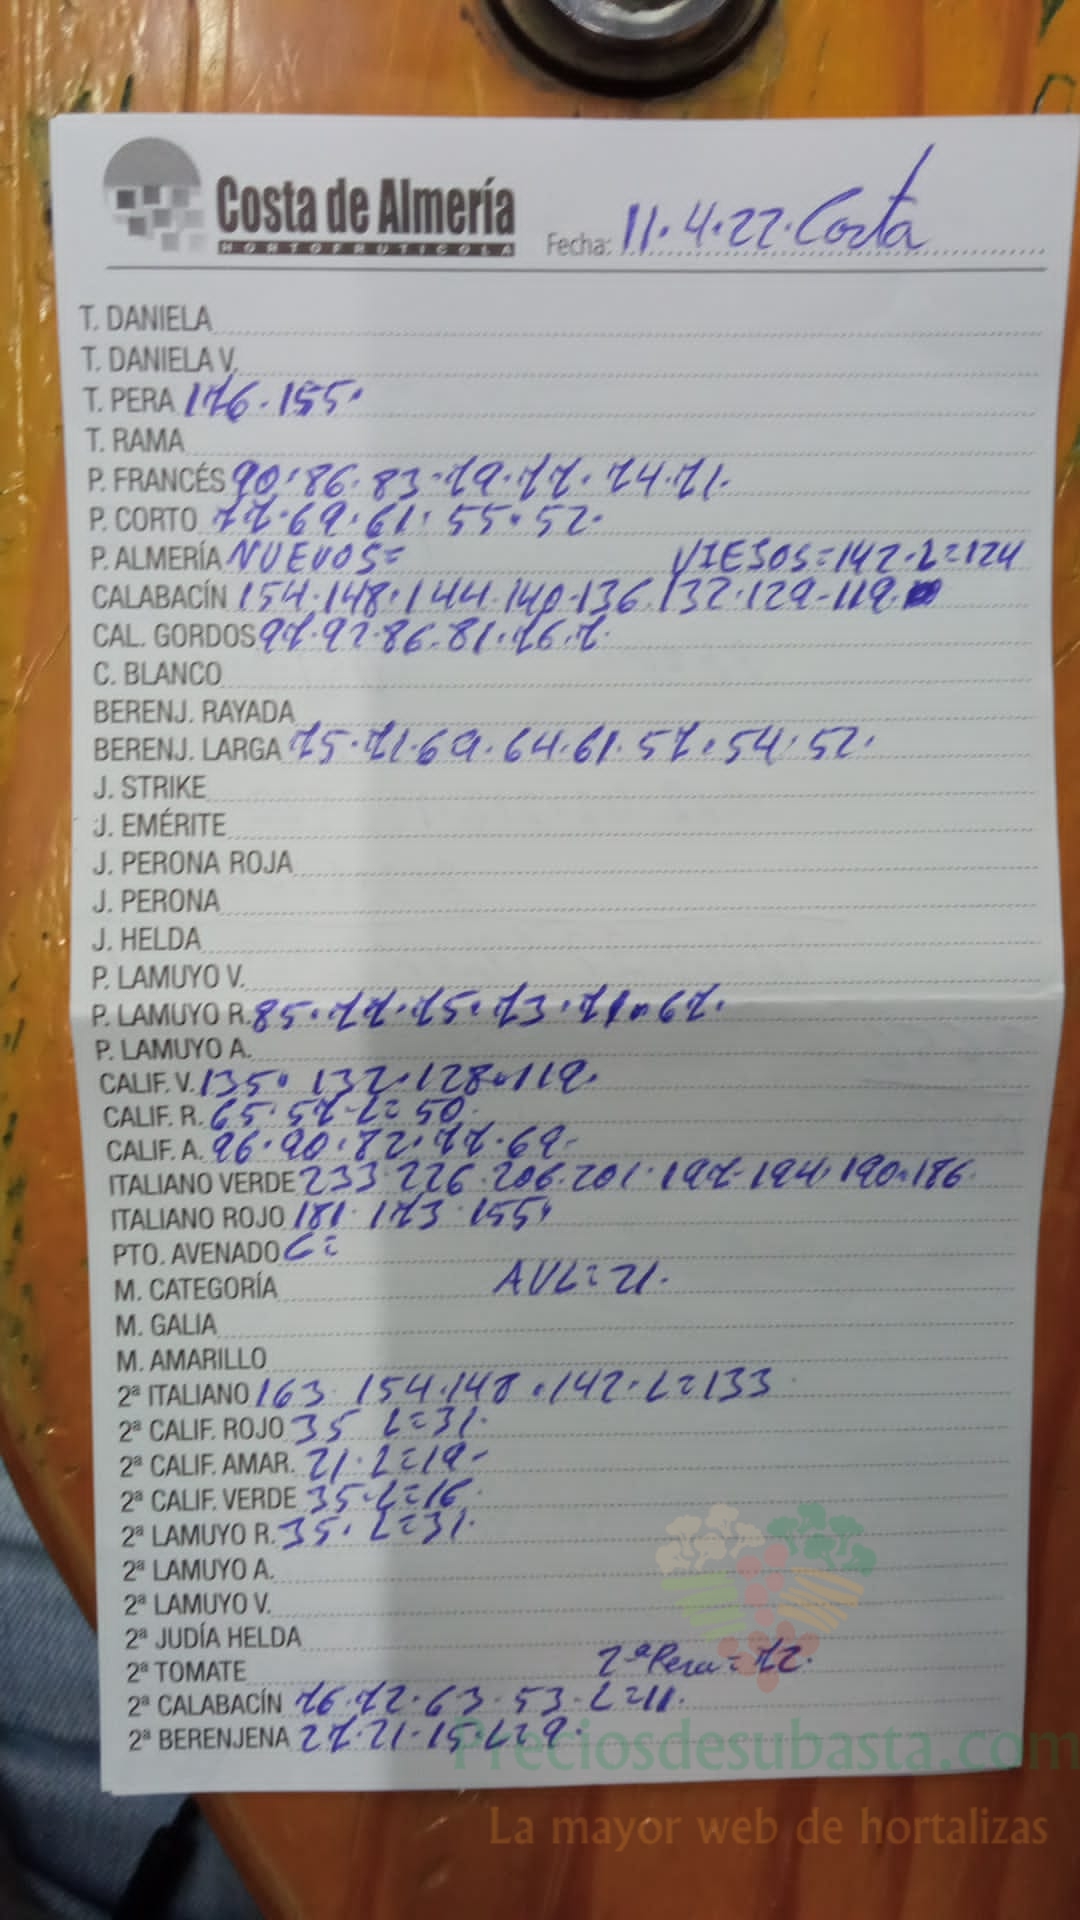 Costa de Almería
HORTOFRUTICOLA
Fecha: 11.4.22. Costa
T. DANIELA
T. DANIELA V.
T. PERA 176. 155.
T. RAMA
P. FRANCÉS 90. 86. 83. 79. 77. 74. 71.
P. CORTO 77. 69. 61. 55. 52.
P. ALMERÍA NUEVOS= VIEJOS=142. L=124
CALABACÍN 154. 148. 144. 140. 136. 132. 129. 119.
CAL. GORDOS 97. 92. 86. 81. 76. 7.
C. BLANCO
BERENJ. RAYADA
BERENJ. LARGA 75. 71. 69. 64. 61. 57. 54. 52.
J. STRIKE
J. EMÉRITE
J. PERONA ROJA
J. PERONA
J. HELDA
P. LAMUYO V.
P. LAMUYO R. 85. 77. 75. 73. 71. 67.
P. LAMUYO A.
CALIF. V. 135. 132. 128. 119.
CALIF. R. 65. 57. L= 50.
CALIF. A. 96. 90. 82. 77. 69.
ITALIANO VERDE 233. 226. 206. 201. 197. 194. 190. 186.
ITALIANO ROJO 181. 173. 155.
PTO. AVENADO C=
M. CATEGORÍA AVL=21.
M. GALIA
M. AMARILLO
2ª ITALIANO 163. 154. 148. 142. L=133
2ª CALIF. ROJO 35 L=31.
2ª CALIF. AMAR. 21. L=19.
2ª CALIF. VERDE 35. L=16.
2ª LAMUYO R. 35. L=31.
2ª LAMUYO A.
2ª LAMUYO V.
2ª JUDÍA HELDA
2ª TOMATE 2ª Pera= 72.
2ª CALABACÍN 76. 72. 63. 53. L=11.
2ª BERENJENA 27. 21. 15. L=9.
Preciosdesubasta.com
La mayor web de hortalizas